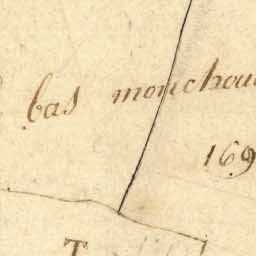 bas monchou
169
T